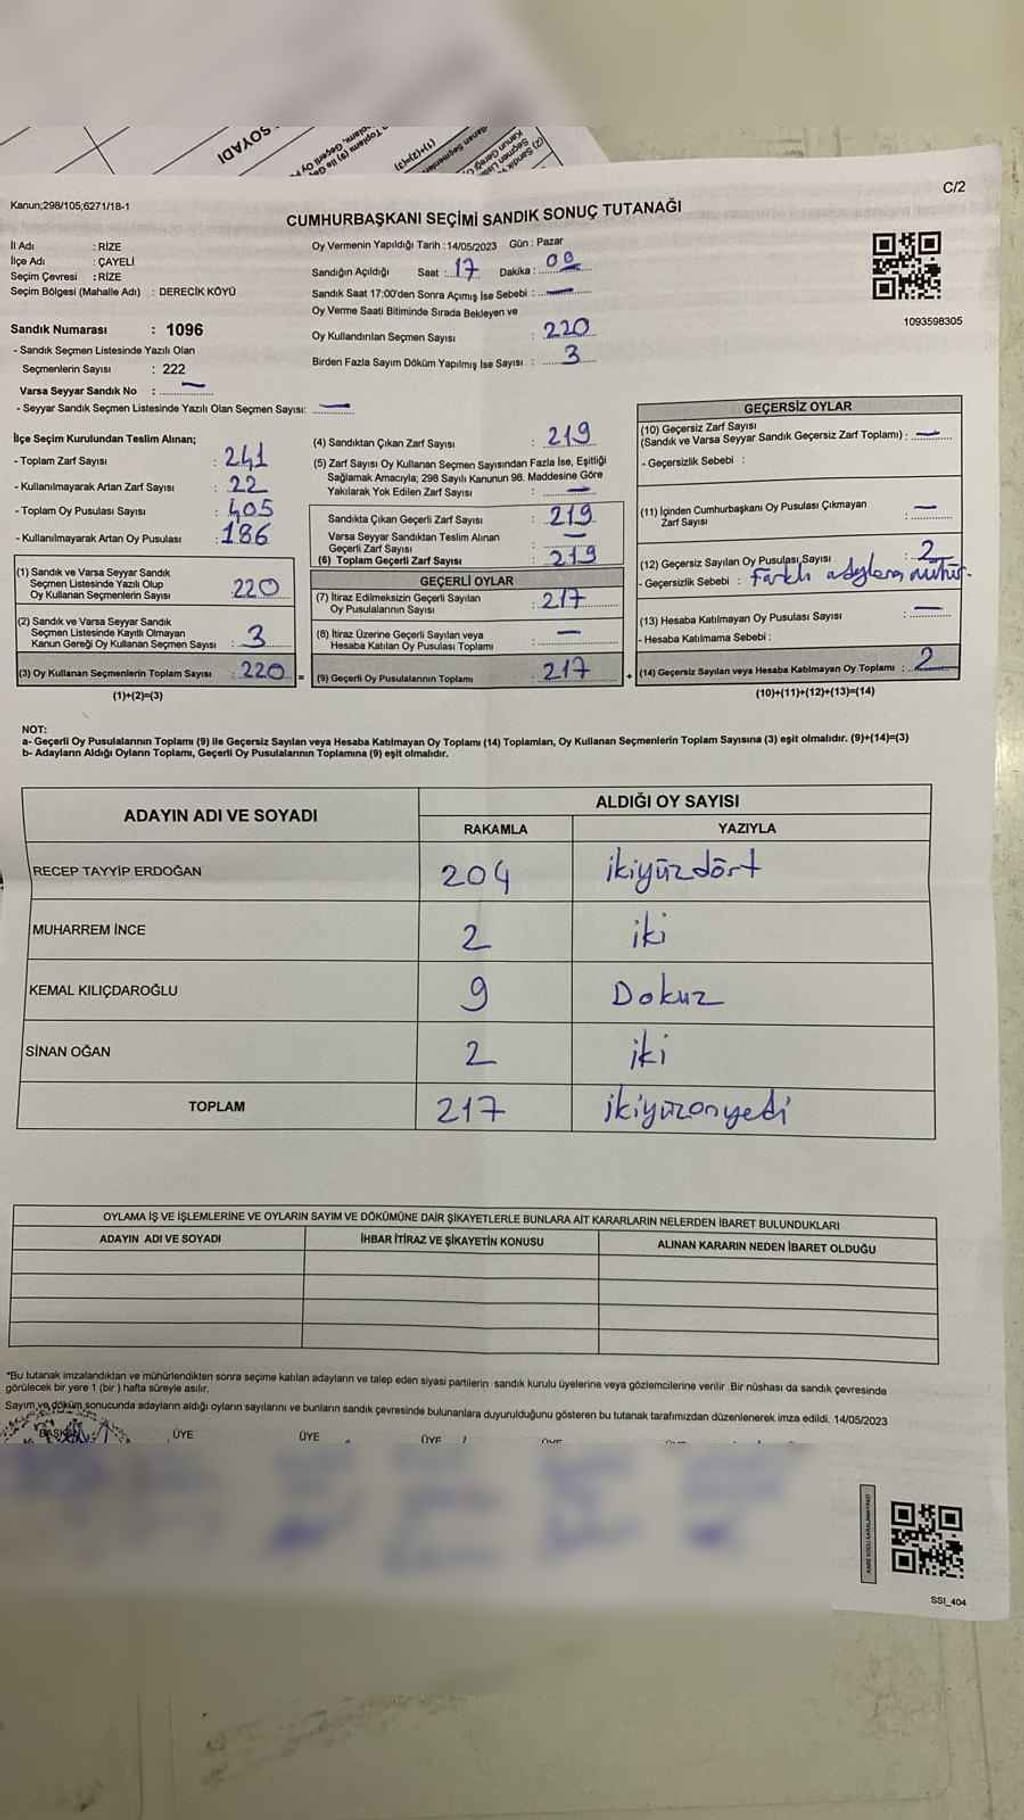 SOYADI
C/2
Kanun;298/105;6271/18-1
CUMHURBAŞKANI SEÇİMİ SANDIK SONUÇ TUTANAĞI
İl Adı : RİZE
İlçe Adı : ÇAYELİ
Seçim Çevresi : RİZE
Seçim Bölgesi (Mahalle Adı) : DERECİK KÖYÜ
Oy Vermenin Yapıldığı Tarih : 14/05/2023 Gün : Pazar
Sandığın Açıldığı Saat : 17 Dakika : 00
Sandık Saat 17:00'den Sonra Açımış İse Sebebi : —
Oy Verme Saati Bitiminde Sırada Bekleyen ve
Oy Kullandırılan Seçmen Sayısı : 220
Birden Fazla Sayım Döküm Yapılmış İse Sayısı : 3
1093598305
Sandık Numarası : 1096
- Sandık Seçmen Listesinde Yazılı Olan
Seçmenlerin Sayısı : 222
Varsa Seyyar Sandık No : —
- Seyyar Sandık Seçmen Listesinde Yazılı Olan Seçmen Sayısı: —
İlçe Seçim Kurulundan Teslim Alınan;
- Toplam Zarf Sayısı : 241
- Kullanılmayarak Artan Zarf Sayısı : 22
- Toplam Oy Pusulası Sayısı : 405
- Kullanılmayarak Artan Oy Pusulası : 186
(1) Sandık ve Varsa Seyyar Sandık
Seçmen Listesinde Yazılı Olup
Oy Kullanan Seçmenlerin Sayısı : 220
(2) Sandık ve Varsa Seyyar Sandık
Seçmen Listesinde Kayıtlı Olmayan
Kanun Gereği Oy Kullanan Seçmen Sayısı : 3
(3) Oy Kullanan Seçmenlerin Toplam Sayısı : 220
(1)+(2)=(3)
(4) Sandıktan Çıkan Zarf Sayısı : 219
(5) Zarf Sayısı Oy Kullanan Seçmen Sayısından Fazla İse, Eşitliği
Sağlamak Amacıyla; 298 Sayılı Kanunun 98. Maddesine Göre
Yakılarak Yok Edilen Zarf Sayısı : —
Sandıkta Çıkan Geçerli Zarf Sayısı : 219
Varsa Seyyar Sandıktan Teslim Alınan
Geçerli Zarf Sayısı : —
(6) Toplam Geçerli Zarf Sayısı : 219
GEÇERLİ OYLAR
(7) İtiraz Edilmeksizin Geçerli Sayılan
Oy Pusulalarının Sayısı : 217
(8) İtiraz Üzerine Geçerli Sayılan veya
Hesaba Katılan Oy Pusulası Toplamı : —
(9) Geçerli Oy Pusulalarının Toplamı : 217
GEÇERSİZ OYLAR
(10) Geçersiz Zarf Sayısı
(Sandık ve Varsa Seyyar Sandık Geçersiz Zarf Toplamı) : —
- Geçersizlik Sebebi :
(11) İçinden Cumhurbaşkanı Oy Pusulası Çıkmayan
Zarf Sayısı : —
(12) Geçersiz Sayılan Oy Pusulası Sayısı : 2
- Geçersizlik Sebebi : Farklı adylara mühür.
(13) Hesaba Katılmayan Oy Pusulası Sayısı : —
- Hesaba Katılmama Sebebi :
(14) Geçersiz Sayılan veya Hesaba Katılmayan Oy Toplamı : 2
(10)+(11)+(12)+(13)=(14)
NOT:
a- Geçerli Oy Pusulalarının Toplamı (9) ile Geçersiz Sayılan veya Hesaba Katılmayan Oy Toplamı (14) Toplamları, Oy Kullanan Seçmenlerin Toplam Sayısına (3) eşit olmalıdır. (9)+(14)=(3)
b- Adayların Aldığı Oyların Toplamı, Geçerli Oy Pusulalarının Toplamına (9) eşit olmalıdır.
ADAYIN ADI VE SOYADI ALDIĞI OY SAYISI
RAKAMLA YAZIYLA
RECEP TAYYİP ERDOĞAN 204 ikiyüzdört
MUHARREM İNCE 2 iki
KEMAL KILIÇDAROĞLU 9 Dokuz
SİNAN OĞAN 2 iki
TOPLAM 217 ikiyüzonyedi
OYLAMA İŞ VE İŞLEMLERİNE VE OYLARIN SAYIM VE DÖKÜMÜNE DAİR ŞİKAYETLERLE BUNLARA AİT KARARLARIN NELERDEN İBARET BULUNDUKLARI
ADAYIN ADI VE SOYADI İHBAR İTİRAZ VE ŞİKAYETİN KONUSU ALINAN KARARIN NEDEN İBARET OLDUĞU
"Bu tutanak imzalandıktan ve mühürlendikten sonra seçime katılan adayların ve talep eden siyasi partilerin sandık kurulu üyelerine veya gözlemcilerine verilir. Bir nüshası da sandık çevresinde
görülecek bir yere 1 (bir) hafta süreyle asılır.
Sayım ve döküm sonucunda adayların aldığı oyların sayılarını ve bunların sandık çevresinde bulunanlara duyurulduğunu gösteren bu tutanak tarafımızdan düzenlenerek imza edildi. 14/05/2023
BAŞKAN ÜYE ÜYE ÜYE
SSI_404